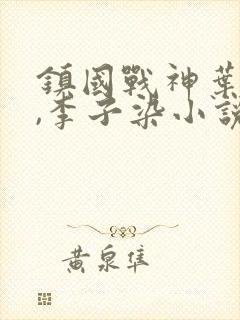 鎮國戰神葉
,李子染小說
黃泉隼